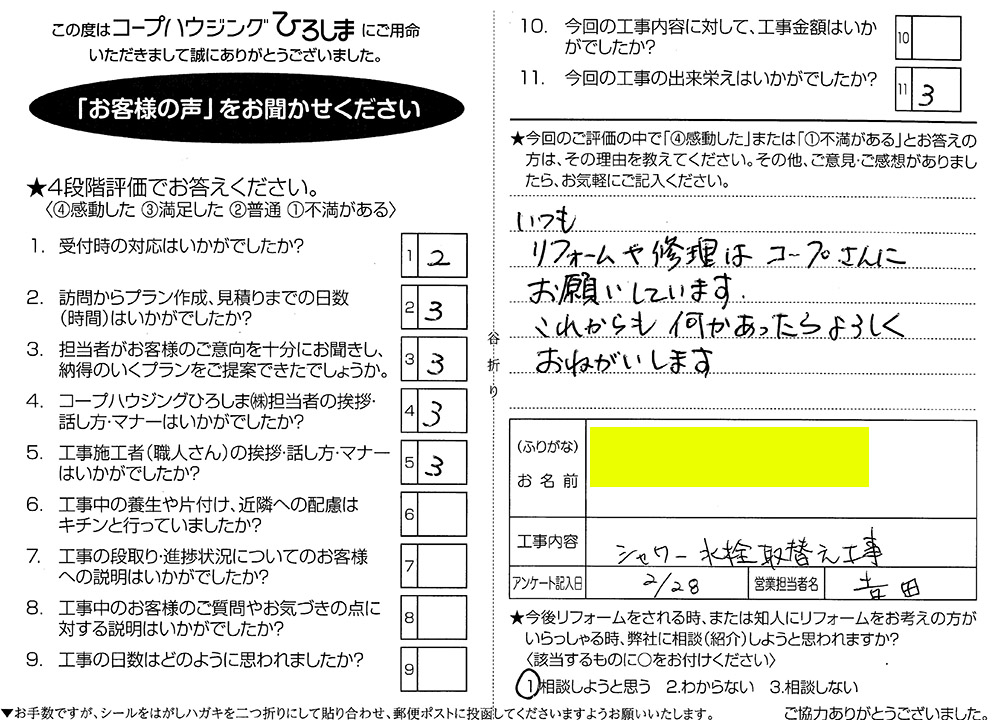 この度はコープハウジングひろしまにご用命
いただきまして誠にありがとうございました。
「お客様の声」をお聞かせください
★4段階評価でお答えください。
〈④感動した ③満足した ②普通 ①不満がある〉
1. 受付時の対応はいかがでしたか?
1 2
2. 訪問からプラン作成、見積りまでの日数
(時間)はいかがでしたか?
2 3
3. 担当者がお客様のご意向を十分にお聞きし、
納得のいくプランをご提案できたでしょうか。
3 3
4. コープハウジングひろしま㈱担当者の挨拶・
話し方・マナーはいかがでしたか?
4 3
5. 工事施工者(職人さん)の挨拶・話し方・マナー
はいかがでしたか?
5 3
6. 工事中の養生や片付け、近隣への配慮は
キチンと行っていましたか?
6
7. 工事の段取り・進捗状況についてのお客様
への説明はいかがでしたか?
7
8. 工事中のお客様のご質問やお気づきの点に
対する説明はいかがでしたか?
8
9. 工事の日数はどのように思われましたか?
9
▼お手数ですが、シールをはがしハガキを二つ折りにして貼り合わせ、郵便ポストに投函してくださいますようお願いいたします。
谷折り
10. 今回の工事内容に対して、工事金額はいか
がでしたか?
10
11. 今回の工事の出来栄えはいかがでしたか?
11 3
★今回のご評価の中で「④感動した」または「①不満がある」とお答えの
方は、その理由を教えてください。その他、ご意見・ご感想がありまし
たら、お気軽にご記入ください。
いつも
リフォームや修理は コープさんに
お願いしています.
これからも 何かあったらよろしく
おねがいします
(ふりがな)
お名前
工事内容 シャワー水栓取替え工事
アンケート記入日 2/28 営業担当者名 吉田
★今後リフォームをされる時、または知人にリフォームをお考えの方が
いらっしゃる時、弊社に相談(紹介)しようと思われますか?
〈該当するものに○をお付けください〉
1.相談しようと思う 2.わからない 3.相談しない
ご協力ありがとうございました。